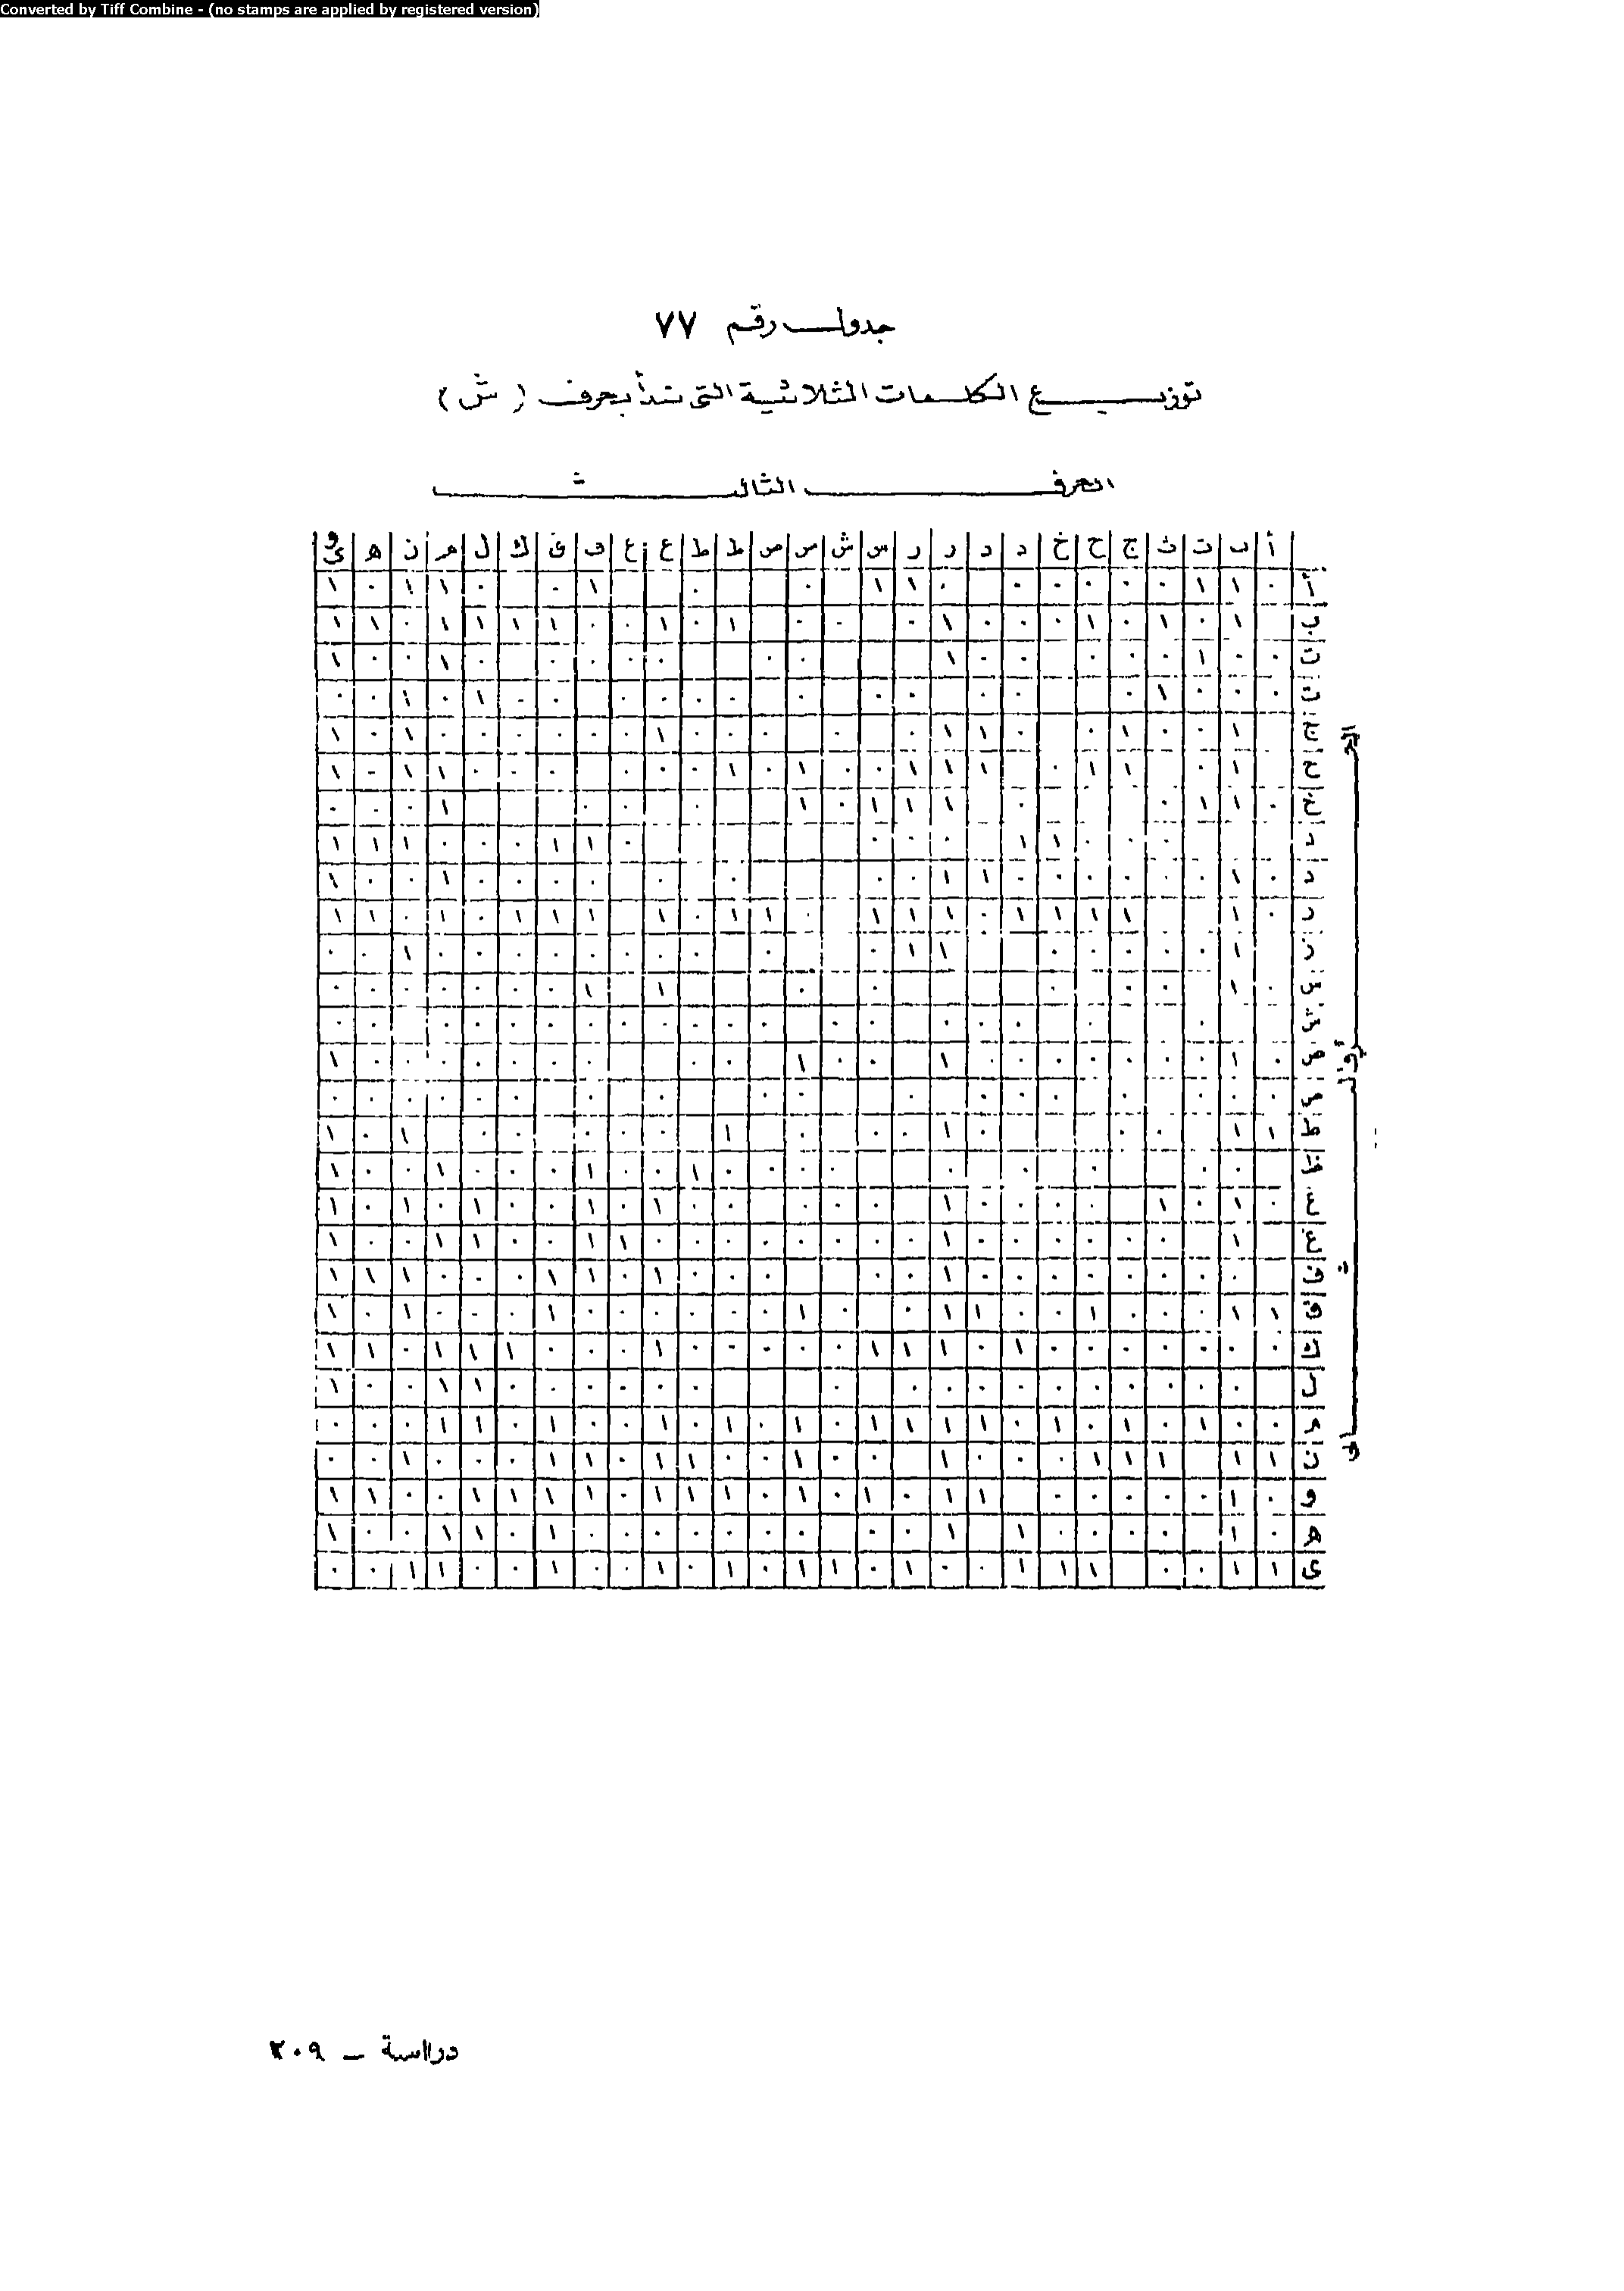 Converted by Tiff Combine - (no stamps are applied by registered version)
جدول رقم ٧٧
توزيع الكلمات الثلاثية التى تبدأ بحرف (ش)
الحرف الثالث
أ ب ت ث ج ح خ د ذ ر ز س ش ص ض ط ظ ع غ ف ق ك ل م ن ه و ى
أ ٠ ١ ١ ٠ ٠ ٠ ٠ ٠ ٠ ٠ ١ ١ ٠ ٠ ١ ٠ ٠ ١ ١ ٠ ١
ب ١ ٠ ١ ٠ ١ ٠ ٠ ٠ ١ ٠ ٠ ٠ ١ ٠ ١ ٠ ٠ ١ ١ ١ ١ ٠ ١ ١
ت ٠ ٠ ١ ٠ ٠ ٠ ٠ ٠ ١ ٠ ٠ ٠ ٠ ٠ ٠ ٠ ١ ٠ ٠ ١
ث ٠ ٠ ٠ ١ ٠ ٠ ٠ ٠ ٠ ٠ ٠ ٠ ٠ ٠ ٠ ٠ ١ ٠ ١ ٠ ٠
ج ١ ٠ ٠ ١ ٠ ٠ ١ ١ ٠ ٠ ٠ ٠ ٠ ١ ٠ ٠ ٠ ٠ ٠ ٠ ١ ٠ ١
ح ١ ٠ ١ ١ ٠ ١ ١ ١ ٠ ٠ ١ ٠ ١ ٠ ٠ ٠ ٠ ٠ ٠ ١ ١ ٠ ١
خ ٠ ١ ١ ٠ ٠ ١ ١ ١ ٠ ١ ٠ ٠ ٠ ٠ ١ ٠ ٠ ٠
د ٠ ٠ ٠ ١ ١ ٠ ٠ ٠ ٠ ١ ١ ٠ ٠ ٠ ١ ١ ١
ذ ٠ ١ ٠ ٠ ٠ ٠ ٠ ٠ ١ ١ ٠ ٠ ٠ ٠ ٠ ٠ ٠ ٠ ١ ٠ ٠ ١
ر ٠ ١ ١ ١ ١ ١ ٠ ١ ١ ١ ٠ ١ ١ ٠ ١ ١ ١ ١ ٠ ١ ٠ ١ ١
ز ١ ٠ ٠ ٠ ٠ ٠ ١ ١ ٠ ٠ ٠ ٠ ٠ ٠ ٠ ٠ ٠ ٠ ١ ٠ ٠
س ٠ ١ ٠ ٠ ٠ ٠ ٠ ١ ١ ٠ ٠ ٠ ٠ ٠ ٠ ٠
ش ٠ ٠ ٠ ٠ ٠ ٠ ٠ ٠ ٠ ٠ ٠ ٠ ٠ ٠ ٠ ٠ ٠ ٠
ص ٠ ١ ٠ ٠ ٠ ٠ ٠ ٠ ٠ ١ ٠ ٠ ١ ٠ ٠ ٠ ٠ ٠ ٠ ٠ ٠ ٠ ١
ض ٠ ٠ ٠ ٠ ٠ ٠ ٠ ٠ ٠ ٠ ٠ ٠ ٠ ٠ ٠ ٠ ٠ ٠
ط ١ ١ ٠ ٠ ٠ ١ ٠ ٠ ٠ ١ ٠ ٠ ٠ ٠ ٠ ١ ٠ ١
ظ ٠ ٠ ٠ ٠ ٠ ٠ ٠ ٠ ٠ ١ ٠ ٠ ١ ٠ ٠ ٠ ١ ٠ ٠ ١
ع ٠ ١ ٠ ١ ٠ ٠ ٠ ٠ ١ ٠ ٠ ٠ ٠ ٠ ١ ٠ ١ ٠ ٠ ١ ٠ ١ ٠ ١
غ ١ ٠ ٠ ٠ ٠ ٠ ٠ ١ ٠ ٠ ٠ ٠ ٠ ٠ ٠ ١ ١ ٠ ٠ ١ ١ ٠ ٠ ١
ف ٠ ٠ ٠ ٠ ٠ ٠ ٠ ١ ٠ ٠ ٠ ٠ ٠ ١ ٠ ١ ١ ٠ ٠ ٠ ١ ١ ١
ق ١ ١ ٠ ٠ ٠ ١ ٠ ٠ ١ ١ ٠ ٠ ٠ ١ ٠ ٠ ٠ ٠ ٠ ٠ ١ ٠ ٠ ٠ ١ ٠ ١
ك ٠ ٠ ٠ ٠ ٠ ٠ ٠ ١ ٠ ١ ١ ١ ٠ ٠ ٠ ٠ ٠ ١ ٠ ٠ ٠ ١ ١ ١ ٠ ١ ١
ل ٠ ٠ ٠ ٠ ٠ ٠ ٠ ٠ ٠ ٠ ٠ ٠ ٠ ٠ ٠ ٠ ٠ ١ ١ ٠ ٠ ١
م ٠ ٠ ١ ٠ ١ ٠ ١ ٠ ١ ١ ١ ١ ٠ ١ ٠ ١ ٠ ١ ٠ ٠ ١ ٠ ١ ١ ٠ ٠ ٠
ن ١ ١ ١ ١ ١ ٠ ٠ ٠ ١ ٠ ٠ ١ ٠ ٠ ١ ١ ٠ ١ ١ ٠ ٠ ٠ ١ ٠ ٠
و ٠ ١ ٠ ٠ ٠ ٠ ٠ ١ ١ ٠ ١ ٠ ١ ٠ ١ ١ ١ ٠ ١ ١ ١ ١ ٠ ٠ ١ ١
ه ٠ ١ ٠ ٠ ٠ ٠ ١ ١ ٠ ٠ ٠ ٠ ٠ ٠ ٠ ٠ ٠ ١ ٠ ١ ١ ٠ ٠ ١
ى ١ ١ ٠ ٠ ١ ١ ١ ٠ ٠ ١ ٠ ١ ١ ٠ ١ ٠ ١ ٠ ٠ ١ ٠ ٠ ١ ١ ٠ ٠
دراسة – ٢٠٩